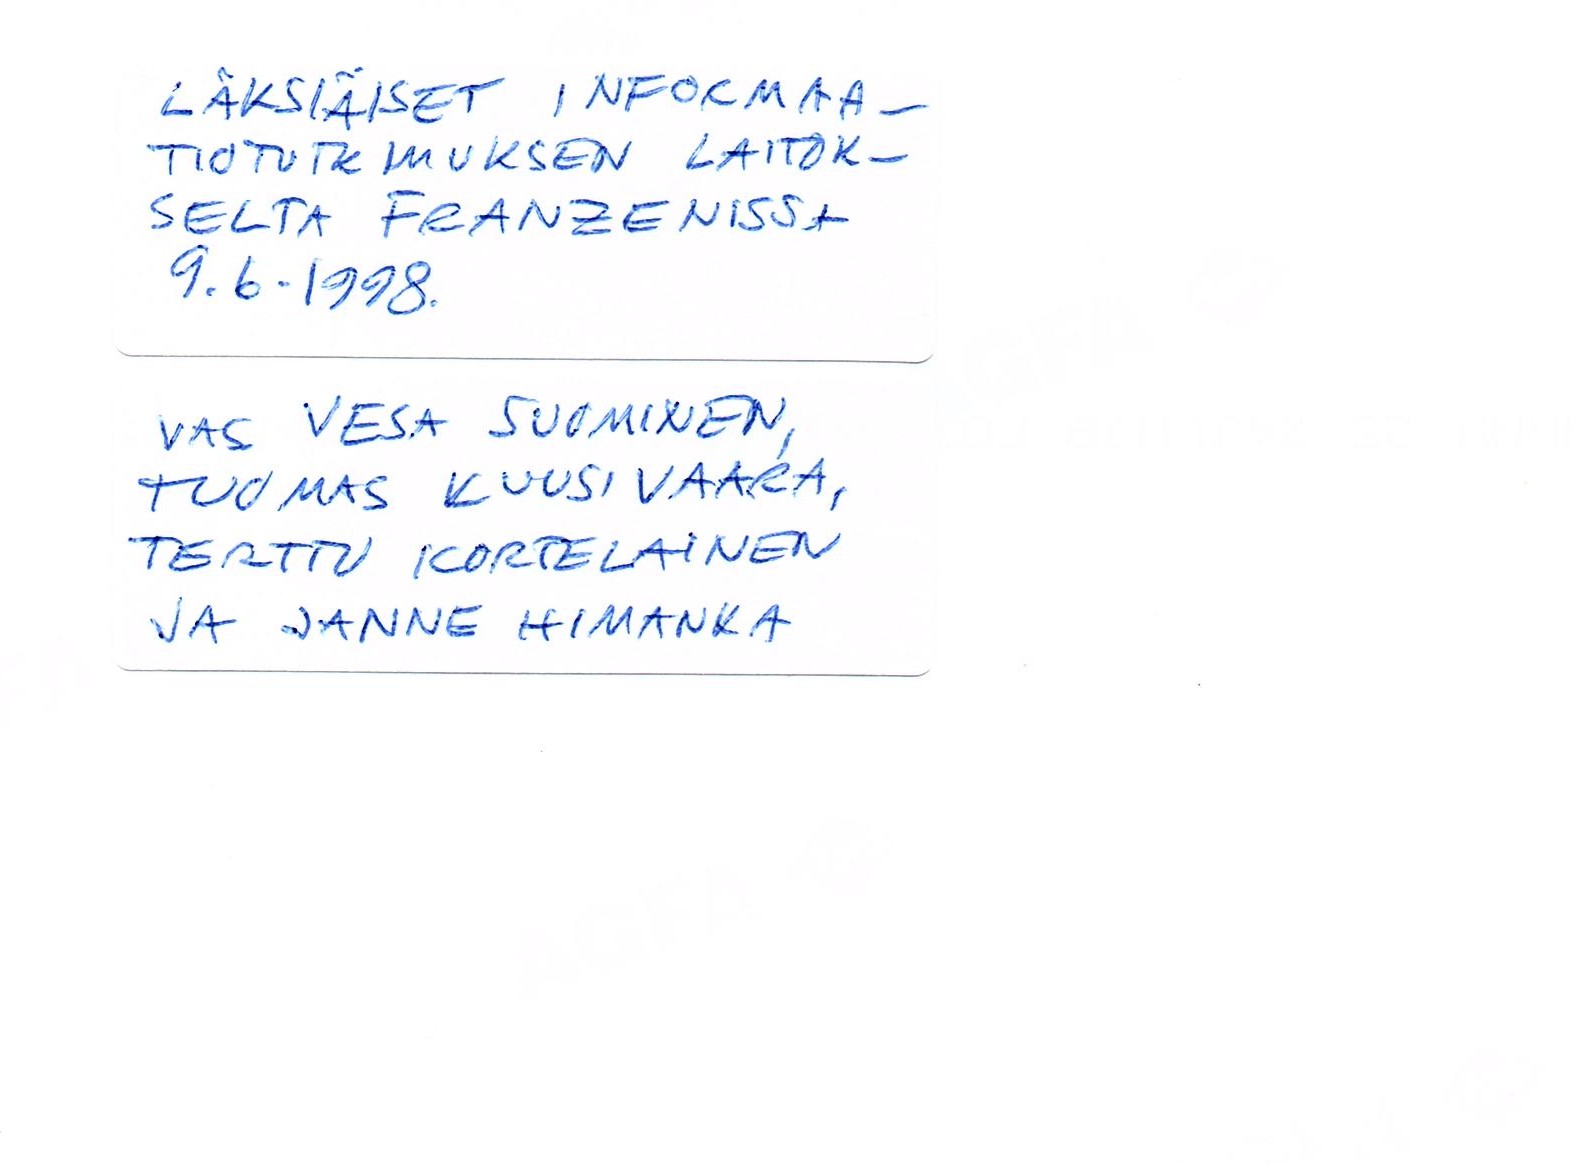 LÄKSIÄISET INFORMAA-
TIOTUTKIMUKSEN LAITOK-
SELTA FRANZENISSA
9.6.1998.
VAS VESA SUOMINEN,
TUOMAS KUUSIVAARA,
TERTTU KORTELAINEN
JA JANNE HIMANKA